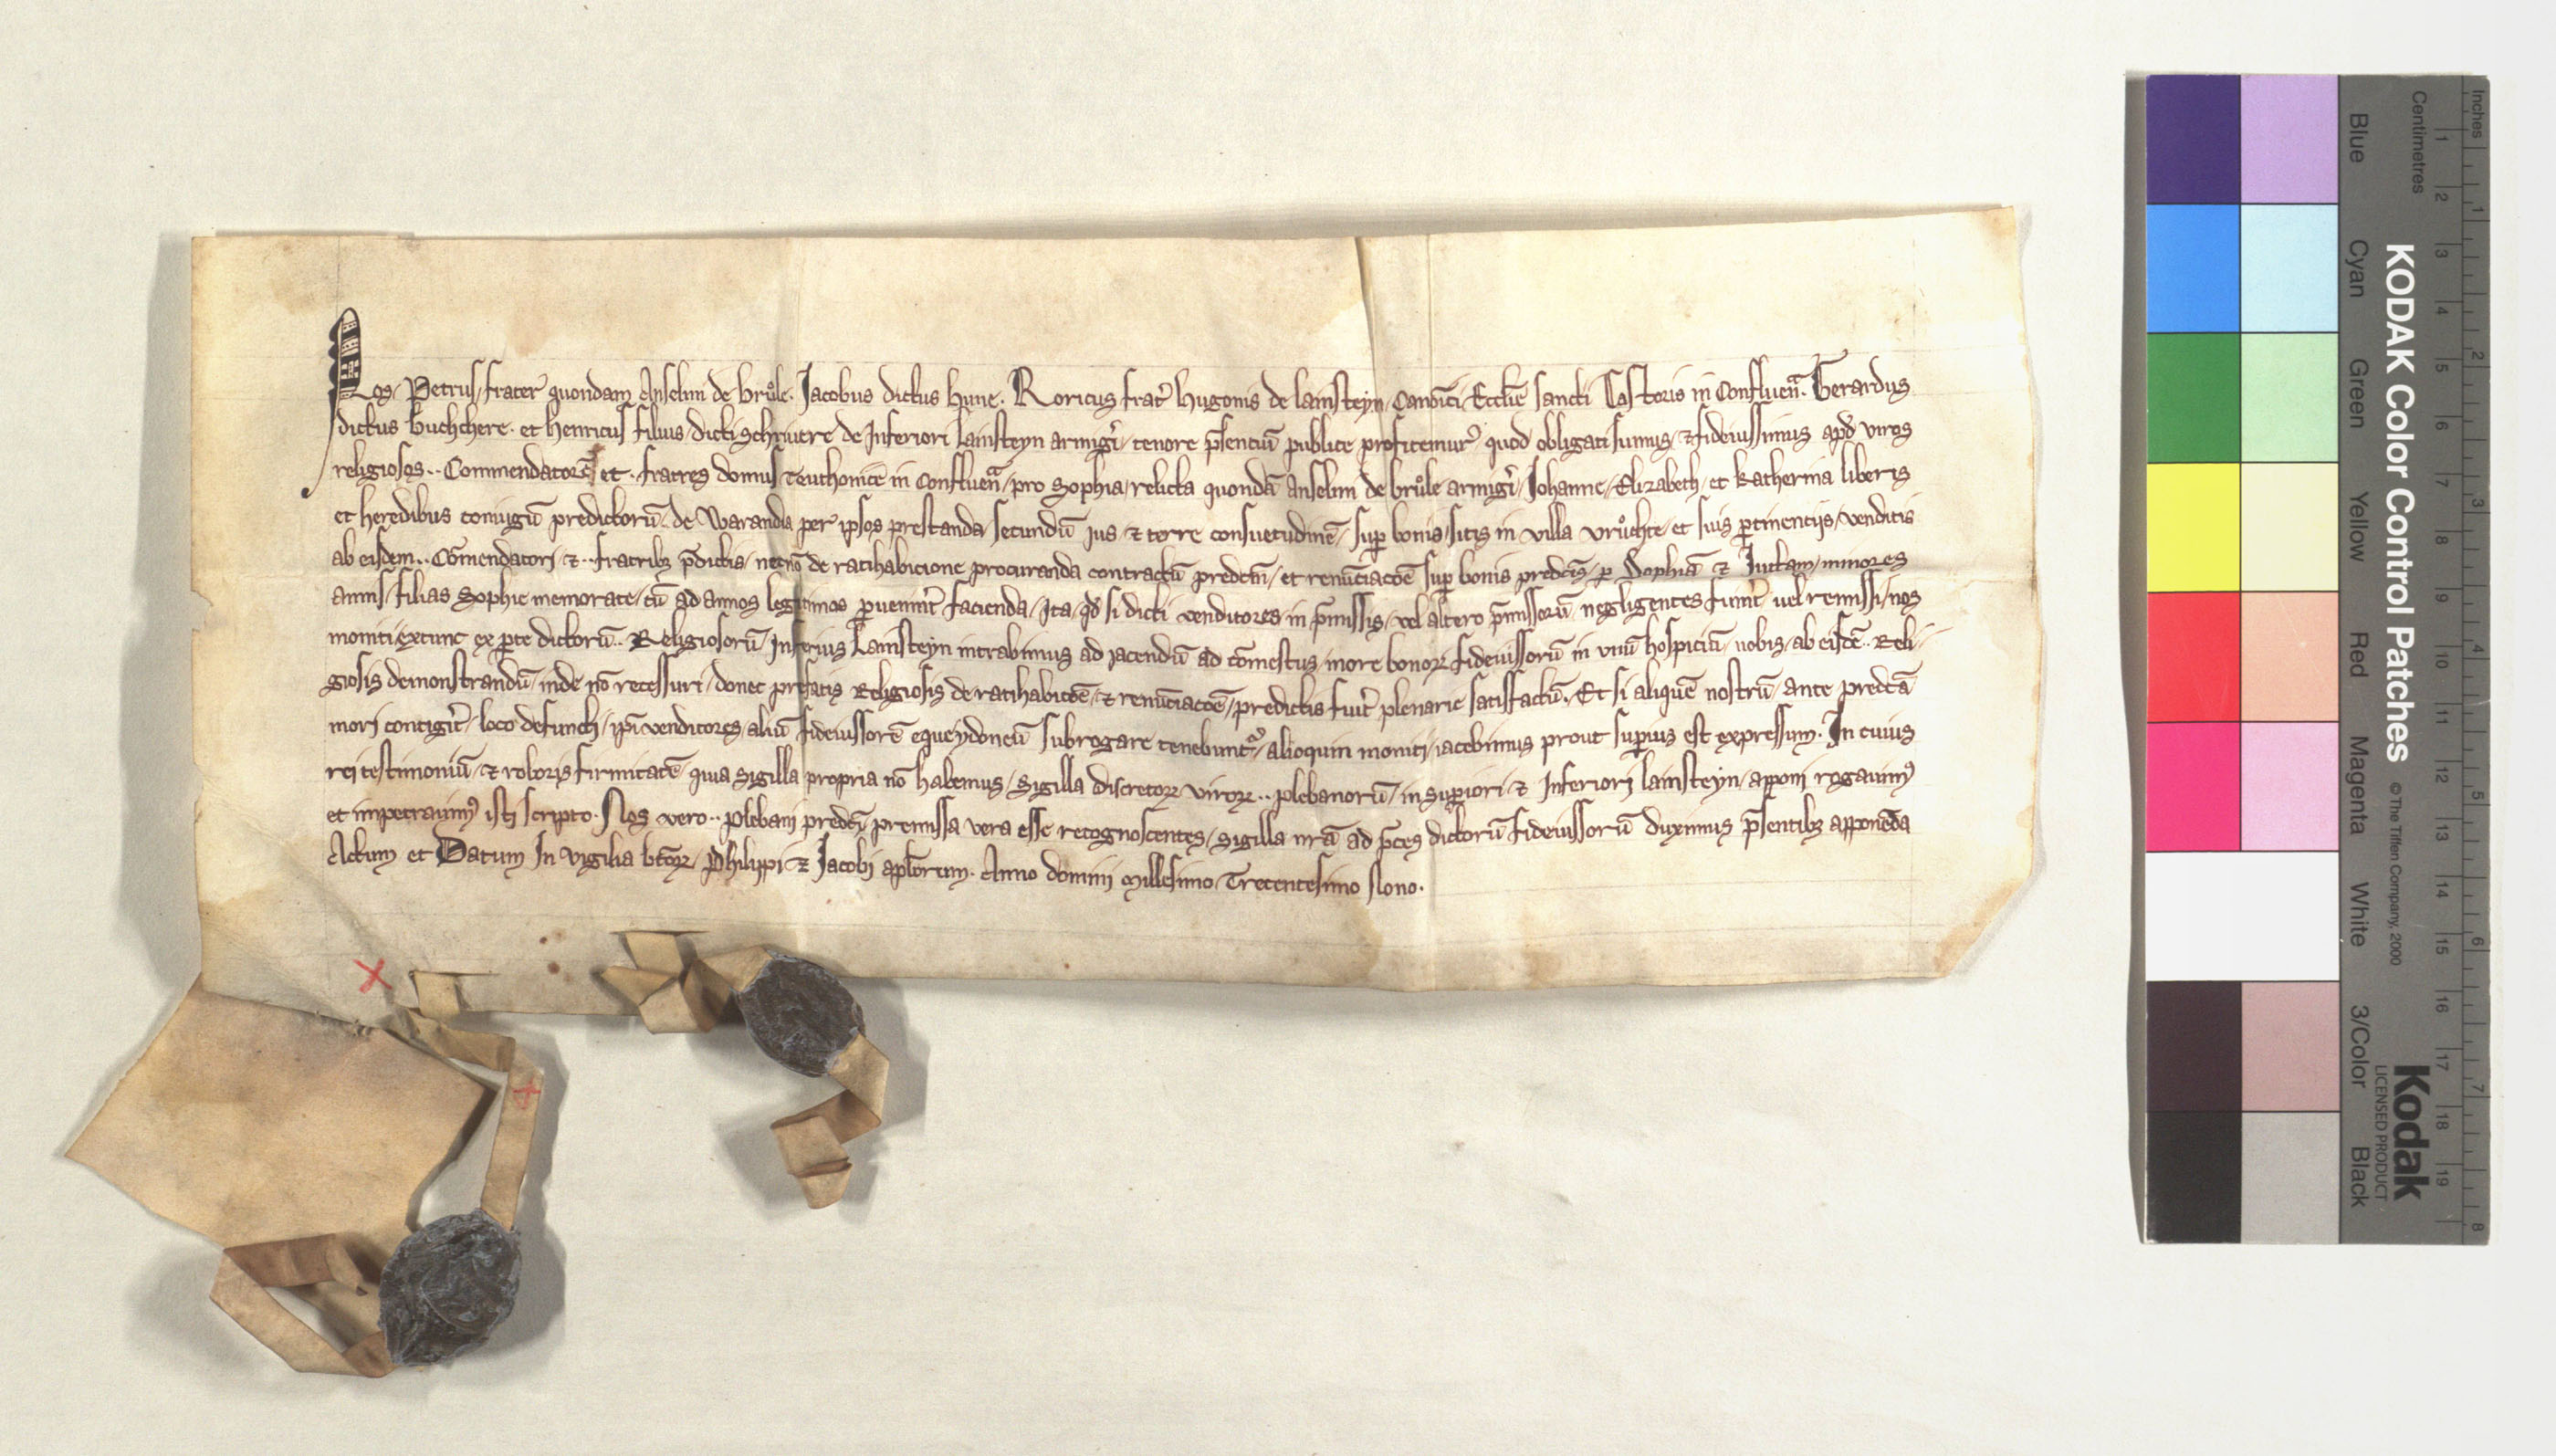 Nos Petrus frater quondam Anselmi de Brůle. Jacobus dictus hune. Roricus frat̓ hugonis de lainsteyn Canoīci Ecclīe sancti Castoris in Confluen̄. Gerardus
dictus buchchere. et henricus filius dicti Schriuere de Inferiori lainsteyn armigi̓ tenore p̄sentiū publice profitemur quod obligati sumus ⁊ fideiussimus apd̓ viros
religiosos .. Commendatorē et . fratres domus Teuthonicē in Confluen̄ pro Sophia relicta quondā anselmi de brůle armigi̓ Johanne Elizabeth et katherina liberis
et heredibus coniugū predictorū de Warandia per ipsos prestanda secundū ius ⁊ terre consuetudinē sup̱ bonis sitis in villa vrůchte et suis ꝑtinentijs venditis
ab eisdem .. Cōmendatori ⁊ .. fratribꝫ p̄dictis necnō de ratihabicione procuranda contractū predcm̄ et renūciacōe sup̱ bonis predcīs ꝑ Sophiā ⁊ Juttam minores
annis filias Sophie memorate cū ad annos legitimos ꝑuenint̓ facienda Ita qd̓ si dicti venditores in p̄missis vel altero p̄missorū negligentes fuint̓ uel remissi nos
moniti extunc ex ꝑte dictorū .. Religiosorū Inferius Lainsteyn intrabimus ad iacendū ad cōmestus more bonoꝝ fideiussorū in vnū hospiciū nobis ab eisdē .. Reli-
giosis demonstrandū inde nō recessuri donec prefatis Religiosis de ratihabicōe ⁊ renūciacōe predictis fuit̓ plenarie satisfactū. Et si aliquē nostrū ante predcā
mori contigit̓ loco defuncti ip̄i venditores aliū fideiussorē eque ydoneū subrogare tenebunt᷑ alioquin moniti iacebimus prout sup̱ius est expressum. In cuius
rei testimoniū ⁊ roboris firmitatē quia sigilla propria nō habemus Sigilla discretoꝝ viroꝝ .. plebanorū in sup̱iori ⁊ Inferiori lainsteyn apponi rogauimꝰ
et impetrauimꝰ isti scripto. Nos vero .. plebani predcī premissa vera esse recognoscentes sigilla nrā ad p̄ces dictorū fideiussorū duximus p̄sentibꝫ apponēda
Actum et Datum In vigilia btōꝝ Philippi ⁊ Jacobi aplōrum. Anno domini Millesimo Trecentesimo Nono.
KODAK Color Control Patches
© The Tiffen Company, 2000
Kodak
LICENSED PRODUCT
Blue
Cyan
Green
Yellow
Red
Magenta
White
3/Color
Black
Centimetres
1 2 3 4 5 6 7 8 9 10 11 12 13 14 15 16 17 18 19
Inches
1 2 3 4 5 6 7 8